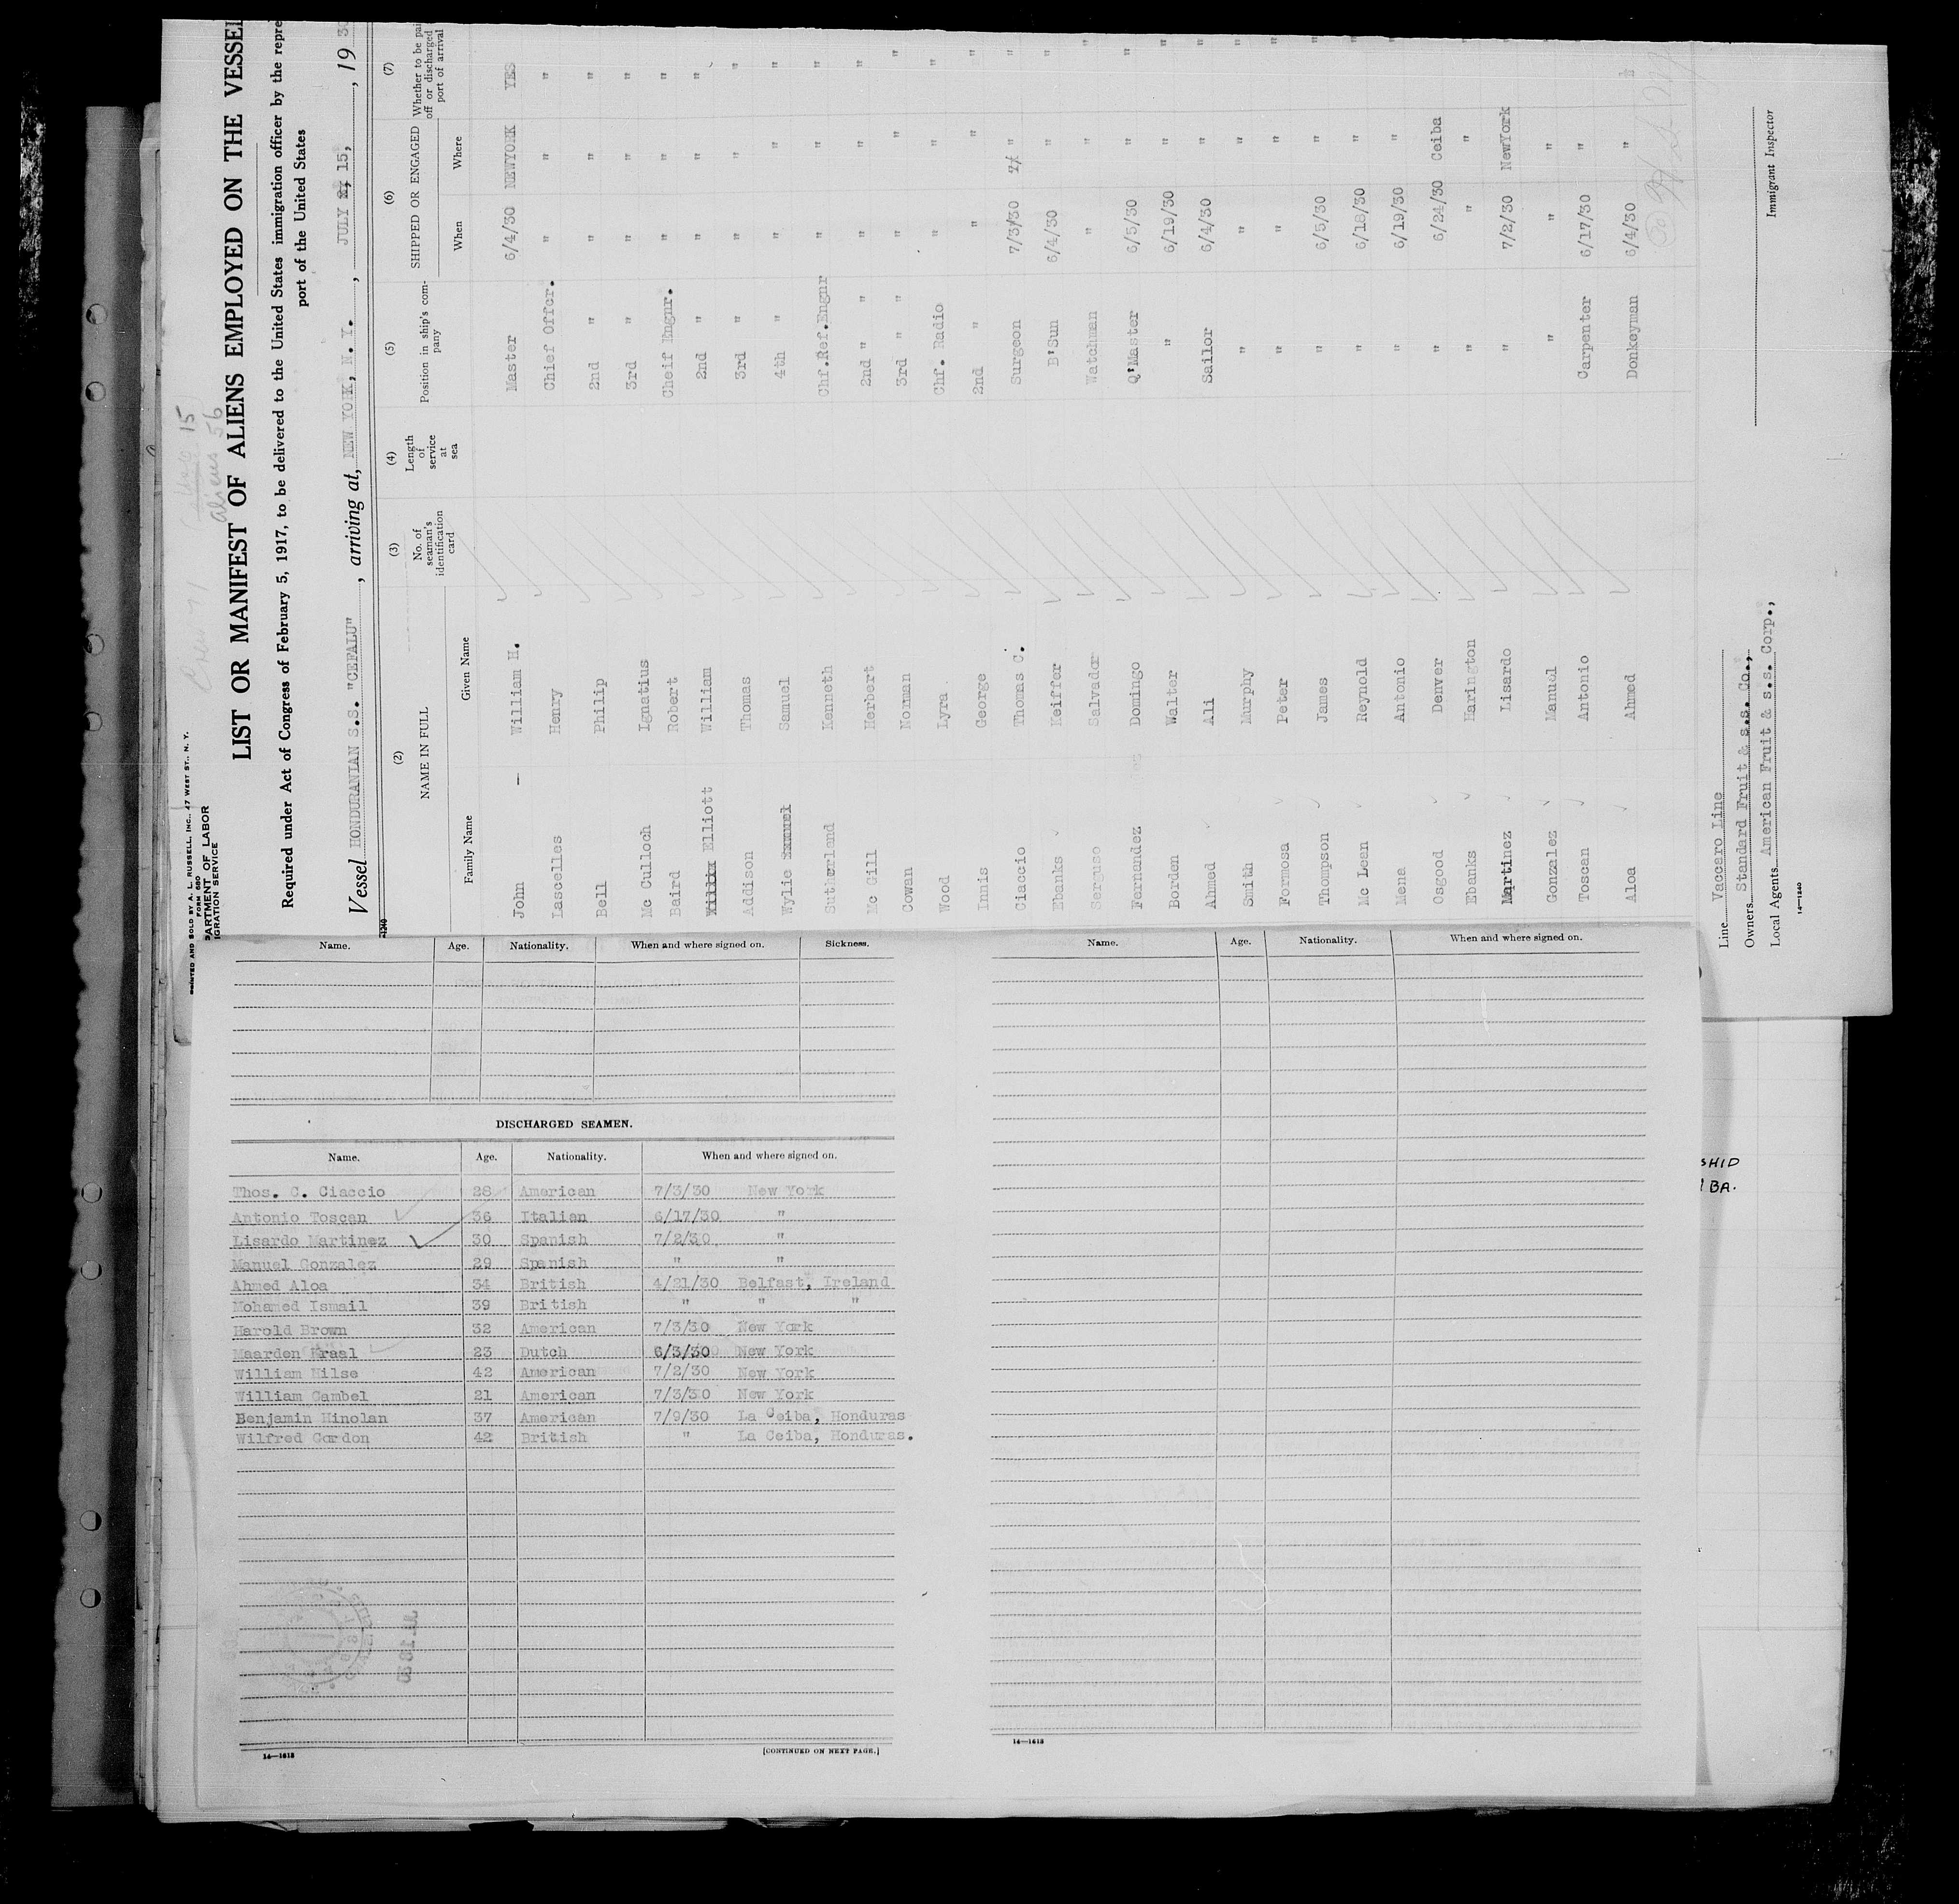 Crew 71
aliens 56
15
PRINTED AND SOLD BY A. L. RUSSELL, INC., 47 WEST ST., N. Y.
FORM 680
PARTMENT OF LABOR
IGRATION SERVICE
LIST OR MANIFEST OF ALIENS EMPLOYED ON THE VESSEL
Required under Act of Congress of February 5, 1917, to be delivered to the United States immigration officer by the repre
port of the United States
Vessel HONDURANIAN S.S. "CEFALU", arriving at, NEW YORK, N. Y., JULY 15, , 1930
(2) (3) (4) (5) (6) (7)
NAME IN FULL No. of seaman's identification card Length of service at sea Position in ship's company SHIPPED OR ENGAGED Whether to be pai off or discharged port of arrival
Family Name Given Name When Where
John — William H. Master 6/4/30 NEWYORK YES
Lascelles Henry Chief Offcr. " " "
Bell Philip 2nd " " " "
Mc Culloch Ignatius 3rd " " " "
Baird Robert Cheif Engnr. " " "
Elliott William 2nd " " " "
Addison Thomas 3rd " " " "
Wylie Samuel 4th " " " "
Sutherland Kenneth Chf.Ref.Engnr " " "
Mc Gill Herbert 2nd " " " " "
Cowan Norman 3rd " " " " "
Wood Lyra Chf. Radio " " "
Innis George 2nd " " " "
Ciaccio Thomas C. Surgeon 7/3/30 " "
Ebanks Keiffer B'Sun 6/4/30 " "
Serguso Salvador Watchman " " "
Fernandez Domingo Q'Master 6/5/30 " "
Borden Walter " 6/19/30 " "
Ahmed Ali Sailor 6/4/30 " "
Smith Murphy " " " "
Formosa Peter " " " "
Thompson James " 6/5/30 " "
Mc Lean Reynold " 6/18/30 " "
Mena Antonio " 6/19/30 " "
Osgood Denver " 6/24/30 Ceiba "
Ebanks Harington " " " "
Martinez Lisardo " 7/2/30 NewYork "
Gonzalez Manuel " " " "
Toscan Antonio Carpenter 6/17/30 " "
Aloa Ahmed Donkeyman 6/4/30 " "
Line Vaccaro Line
Owners Standard Fruit & s.s. Co.,
Local Agents American Fruit & s.s. Corp.,
Immigrant Inspector
14—1240
Name. Age. Nationality. When and where signed on. Sickness.
DISCHARGED SEAMEN.
Name. Age. Nationality. When and where signed on.
Thos. C. Ciaccio 28 American 7/3/30 New York
Antonio Toscan 36 Italian 6/17/30 "
Lisardo Martinez 30 Spanish 7/2/30 "
Manuel Gonzalez 29 Spanish " "
Ahmed Aloa 34 British 4/21/30 Belfast, Ireland
Mohamed Ismail 39 British " " "
Harold Brown 32 American 7/3/30 New York
Maarden Kraal 23 Dutch 6/3/30 New York
William Hilse 42 American 7/2/30 New York
William Gambel 21 American 7/3/30 New York
Benjamin Hinolan 37 American 7/9/30 La Ceiba, Honduras
Wilfred Gordon 42 British " La Ceiba, Honduras.
14—1613
[CONTINUED ON NEXT PAGE.]
Name. Age. Nationality. When and where signed on.
14—1613
SHID
BA.